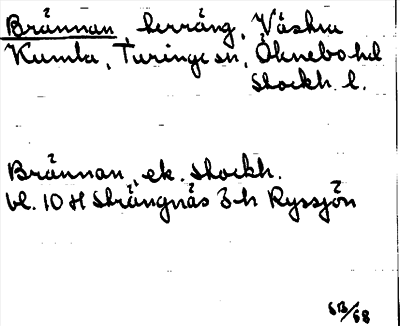 Brännan, terräng, Västra
Kumla, Turinge sn, Öknebo hd
Stockh. l.
Brännan, ek. Stockh.
bl. 10 H Strängnäs 3 h Ryssjön